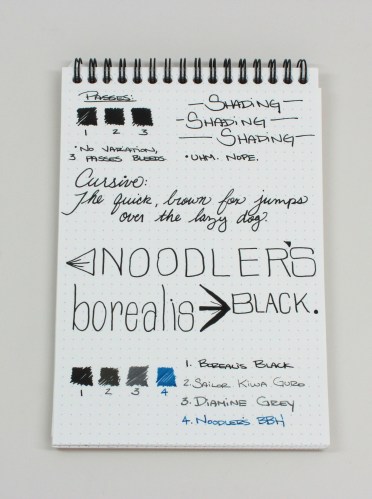 PASSES:
1 2 3
•NO VARIATION,
3 PASSES BLEEDS.
-SHADING-
-SHADING-
-SHADING-
•UHM. NOPE.
Cursive:
The quick, brown fox jumps
over the lazy dog.
NOODLER'S
borealis
BLACK.
1 2 3 4
1. BOREALIS BLACK
2. SAILOR KIWA GURO
3. DIAMINE GREY
4. NOODLER'S BBH